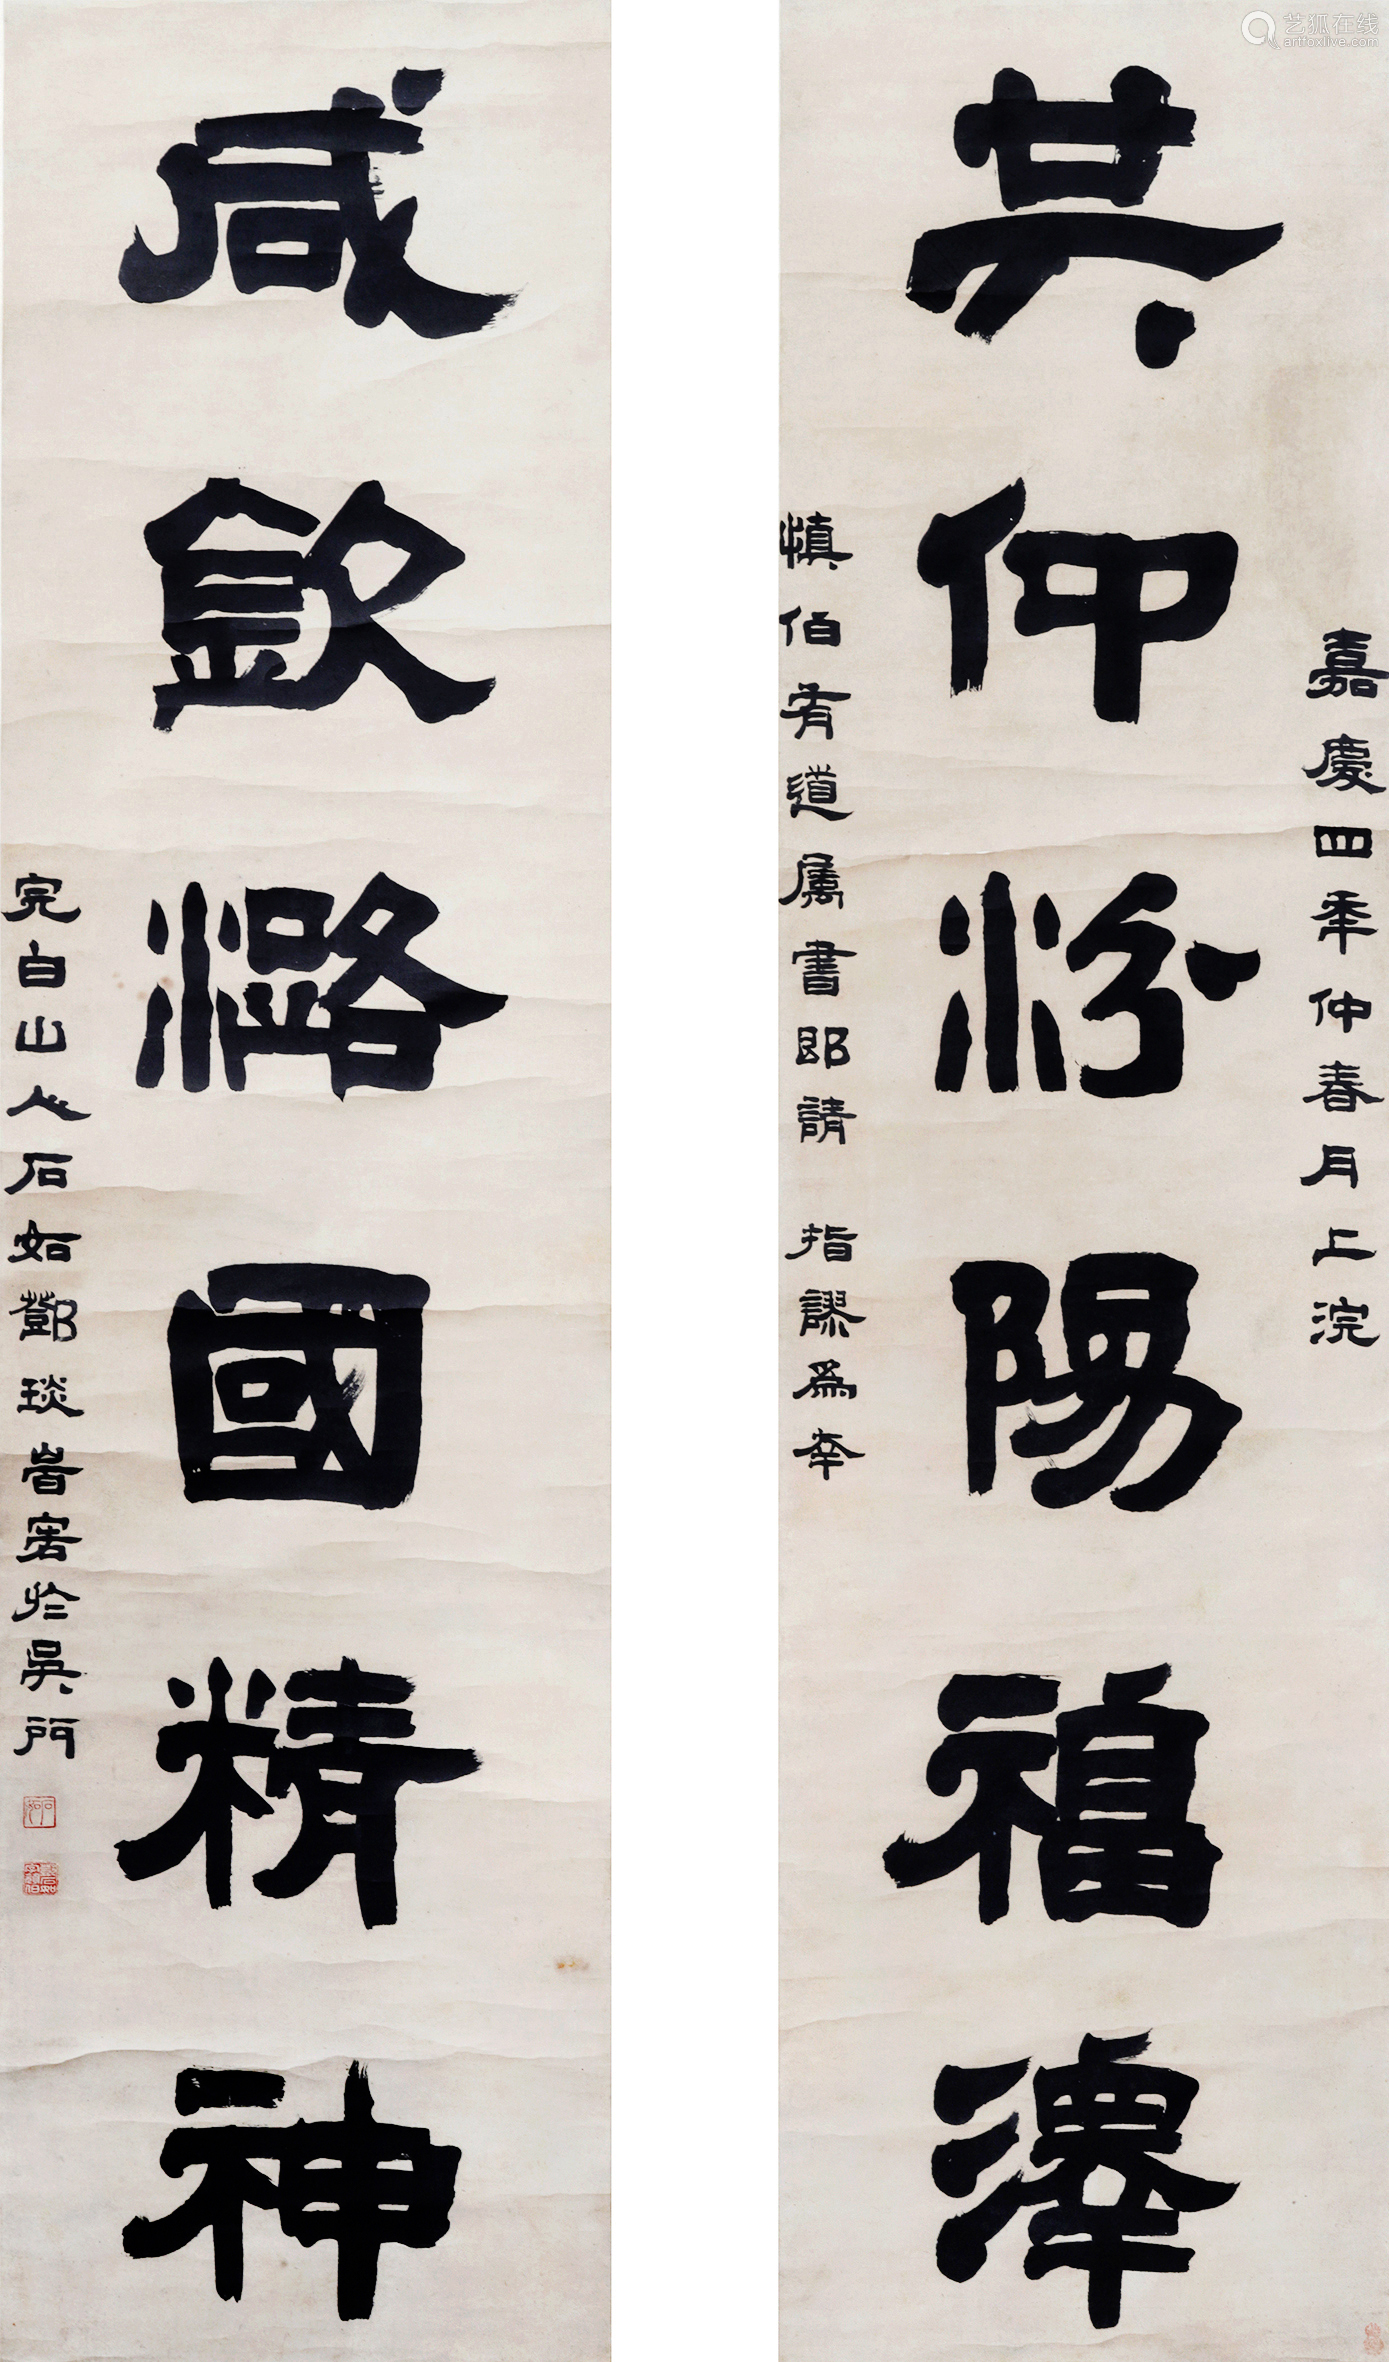 艺狐在线
artfoxlive.com
嘉慶四年仲春月上浣
共仰汾陽福澤
慎伯有道属書即請 指謬為幸
咸欽潞國精神
完白山人石如鄧琰昔客於吳門
石如